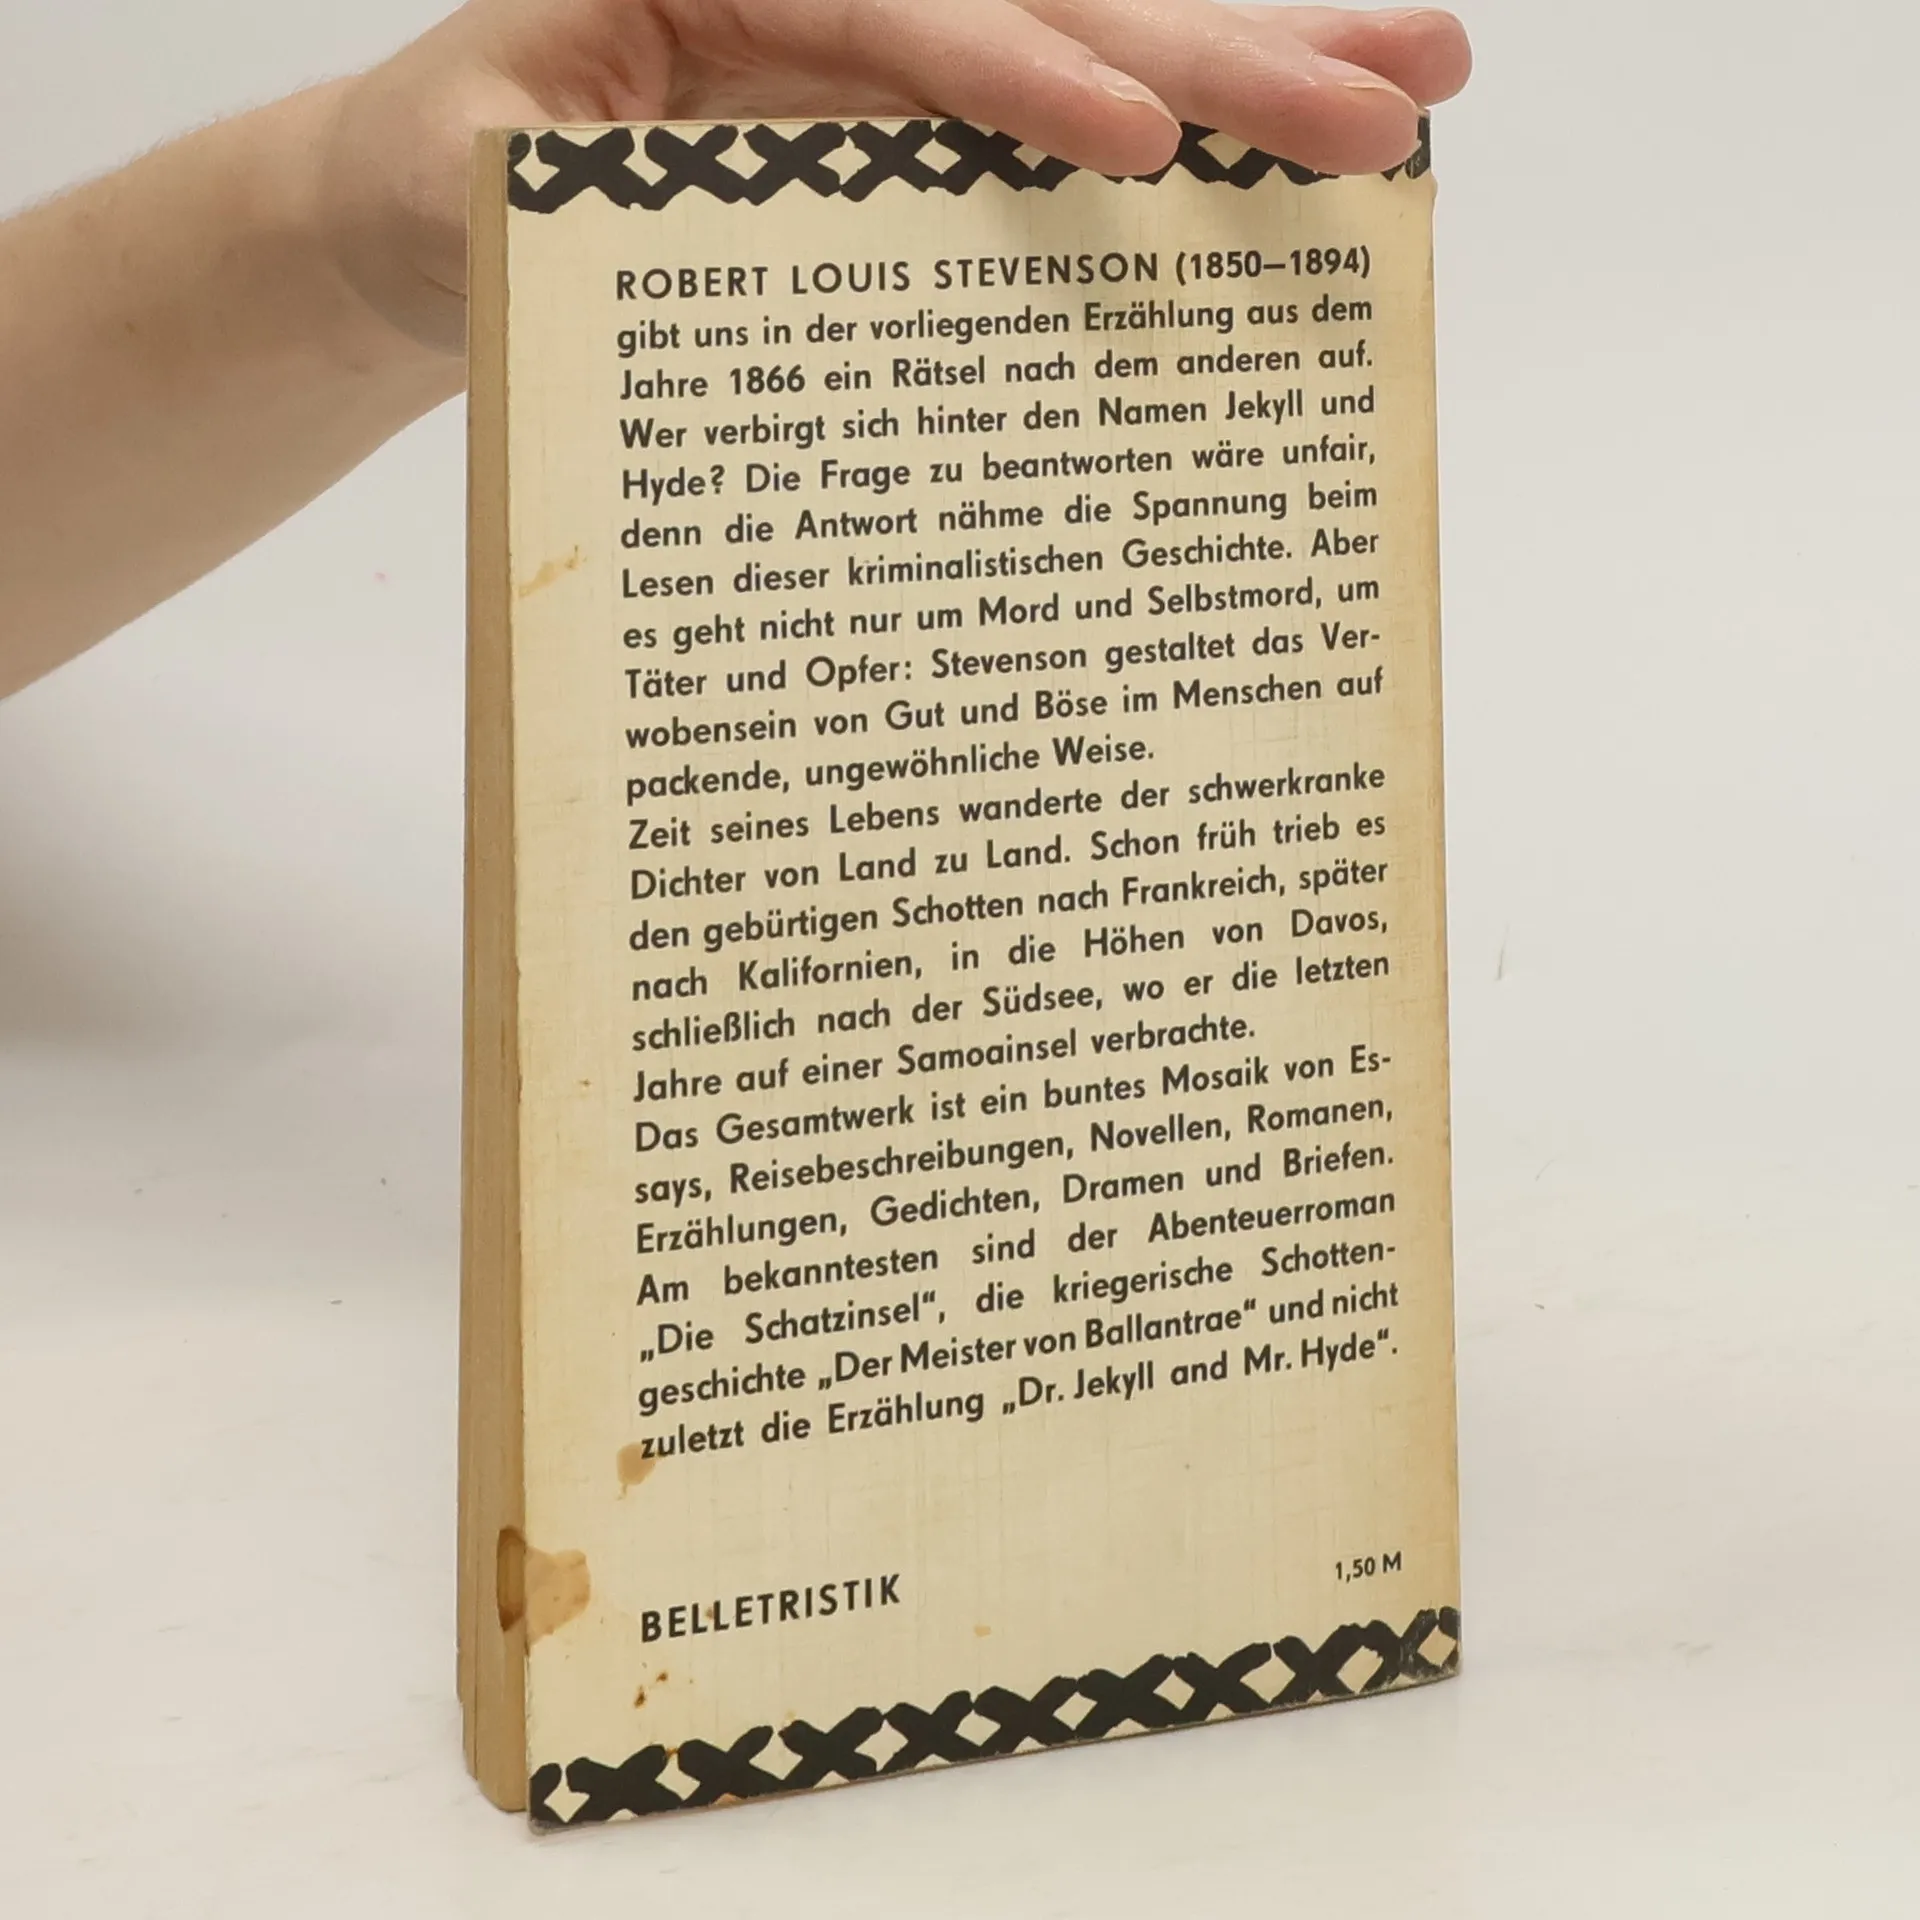 ROBERT LOUIS STEVENSON (1850–1894)
gibt uns in der vorliegenden Erzählung aus dem
Jahre 1866 ein Rätsel nach dem anderen auf.
Wer verbirgt sich hinter den Namen Jekyll und
Hyde? Die Frage zu beantworten wäre unfair,
denn die Antwort nähme die Spannung beim
Lesen dieser kriminalistischen Geschichte. Aber
es geht nicht nur um Mord und Selbstmord, um
Täter und Opfer: Stevenson gestaltet das Ver-
wobensein von Gut und Böse im Menschen auf
packende, ungewöhnliche Weise.
Zeit seines Lebens wanderte der schwerkranke
Dichter von Land zu Land. Schon früh trieb es
den gebürtigen Schotten nach Frankreich, später
nach Kalifornien, in die Höhen von Davos,
schließlich nach der Südsee, wo er die letzten
Jahre auf einer Samoainsel verbrachte.
Das Gesamtwerk ist ein buntes Mosaik von Es-
says, Reisebeschreibungen, Novellen, Romanen,
Erzählungen, Gedichten, Dramen und Briefen.
Am bekanntesten sind der Abenteuerroman
„Die Schatzinsel“, die kriegerische Schotten-
geschichte „Der Meister von Ballantrae“ und nicht
zuletzt die Erzählung „Dr. Jekyll and Mr. Hyde“.
BELLETRISTIK
1,50 M